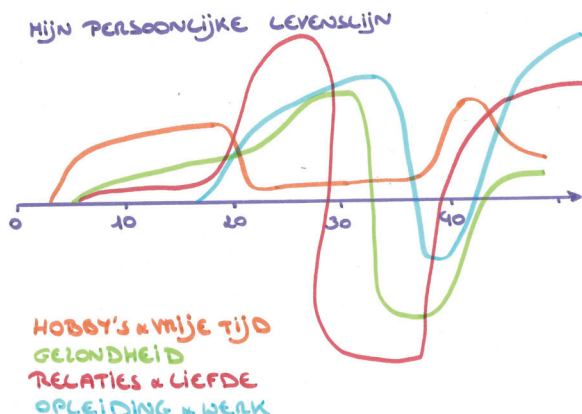 MIJN PERSOONLIJKE LEVENSLIJN
0 10 20 30 40
HOBBY'S & VRIJE TIJD
GEZONDHEID
RELATIES & LIEFDE
OPLEIDING & WERK